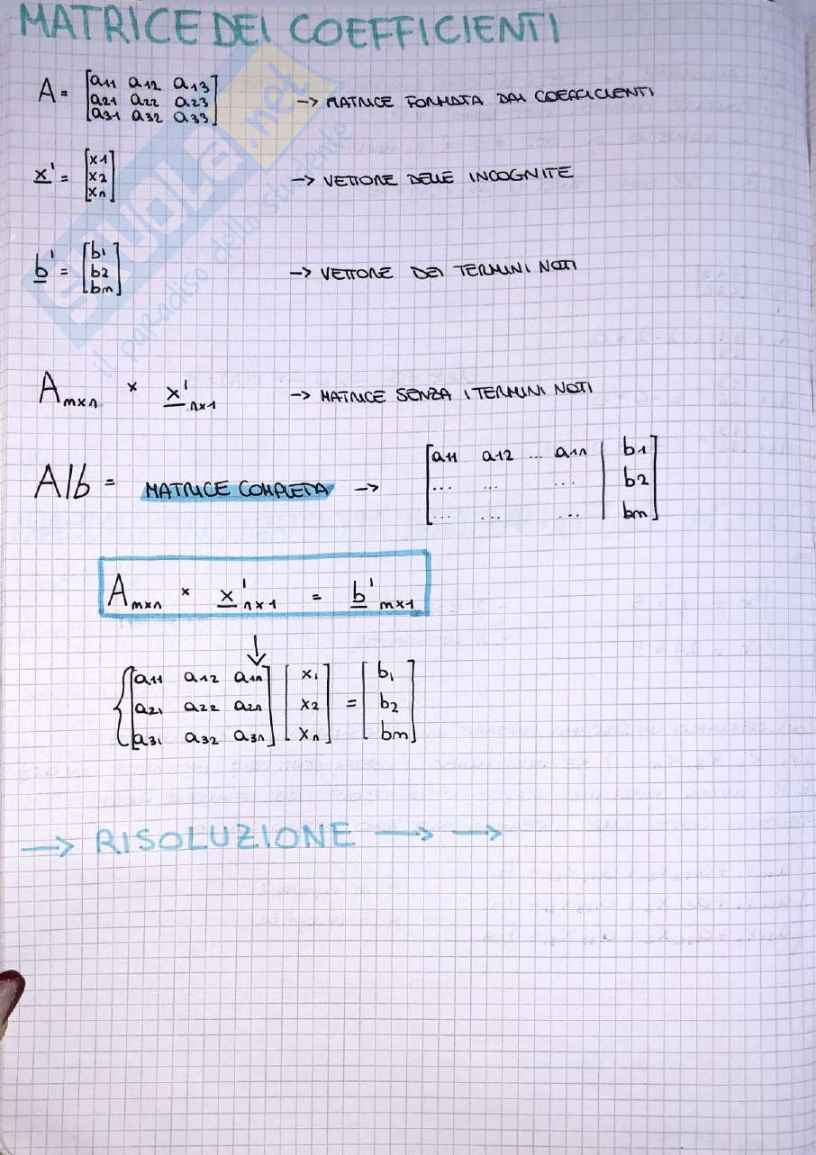 MATRICE DEI COEFFICIENTI
A = [a11 a12 a13
a21 a22 a23
a31 a32 a33] -> MATRICE FORMATA DAI COEFFICIENTI
x' = [x1
x2
xn] -> VETTORE DELLE INCOGNITE
b' = [b1
b2
bm] -> VETTORE DEI TERMINI NOTI
A mxn × x' nx1 -> MATRICE SENZA I TERMINI NOTI
A|b = MATRICE COMPLETA -> [a11 a12 ... a1n | b1
... ... ... | b2
... ... ... | bm]
A mxn × x' nx1 = b' mx1
↓
{[a11 a12 a1n] [x1] = [b1]
[a21 a22 a2n] [x2] = [b2]
[a31 a32 a3n] [xn] = [bm]
→ RISOLUZIONE → →
SKUOLA.net
il paradiso dello studente